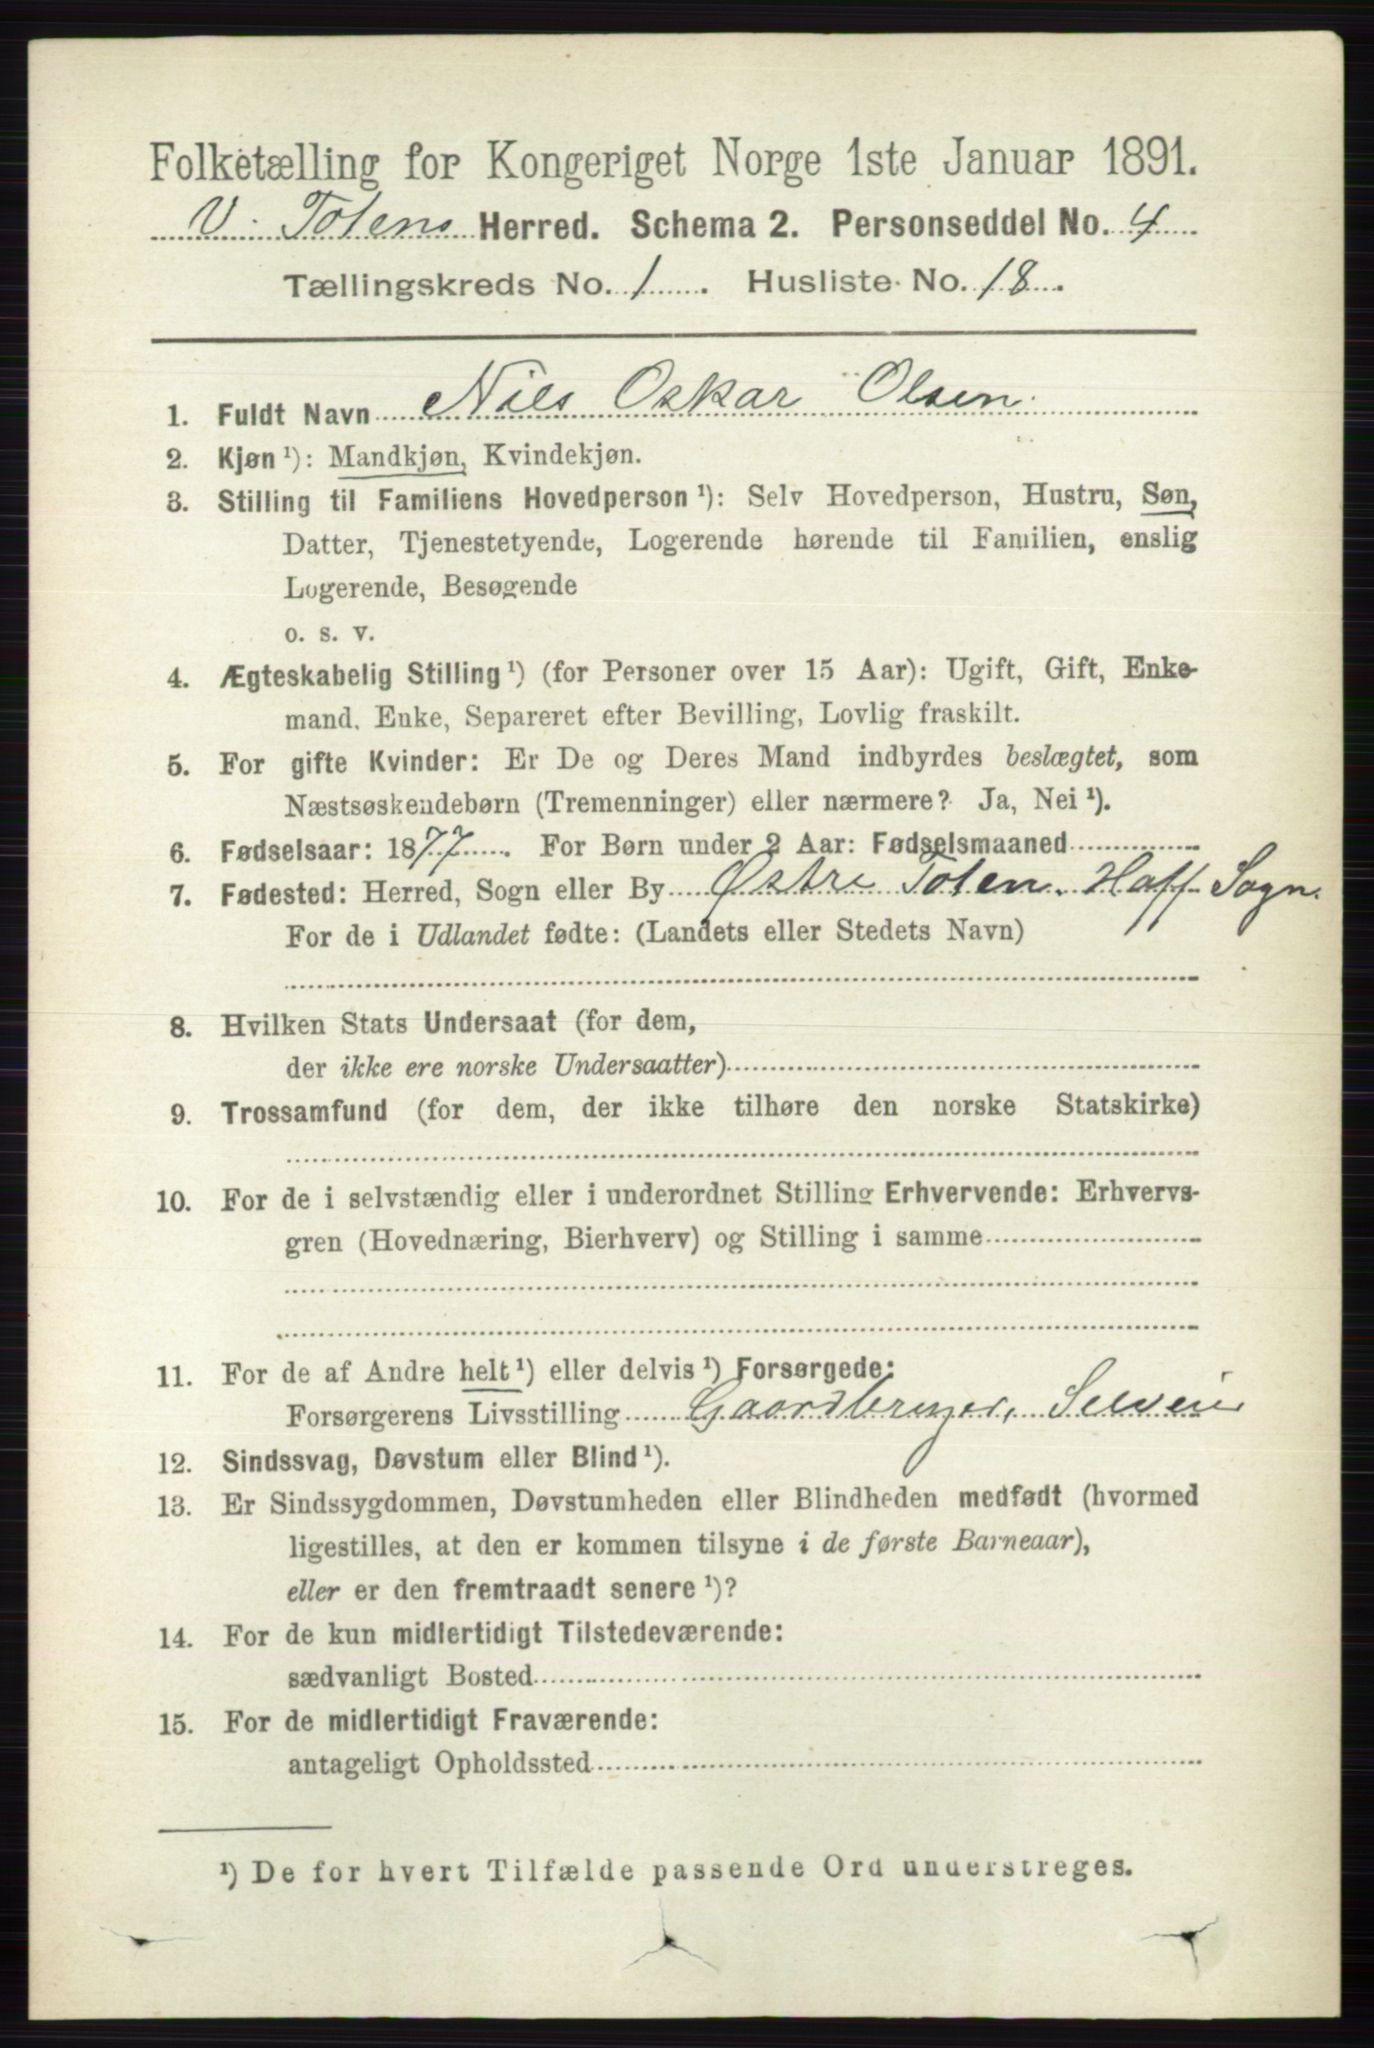 Folketælling for Kongeriget Norge 1ste Januar 1891.
V. Totens Herred. Schema 2. Personseddel No. 4
Tællingskreds No. 1. Husliste No. 18.
1. Fuldt Navn Nils Oskar Olsen.
2. Kjøn ¹): Mandkjøn, Kvindekjøn.
3. Stilling til Familiens Hovedperson ¹): Selv Hovedperson, Hustru, Søn,
Datter, Tjenestetyende, Logerende hørende til Familien, enslig
Logerende, Besøgende
o. s. v.
4. Ægteskabelig Stilling ¹) (for Personer over 15 Aar): Ugift, Gift, Enke-
mand, Enke, Separeret efter Bevilling, Lovlig fraskilt.
5. For gifte Kvinder: Er De og Deres Mand indbyrdes beslægtet, som
Næstsøskendebørn (Tremenninger) eller nærmere? Ja, Nei ¹).
6. Fødselsaar: 1877. For Børn under 2 Aar: Fødselsmaaned
7. Fødested: Herred, Sogn eller By Østre Toten. Hoff Sogn.
For de i Udlandet fødte: (Landets eller Stedets Navn)
8. Hvilken Stats Undersaat (for dem,
der ikke ere norske Undersaatter)
9. Trossamfund (for dem, der ikke tilhøre den norske Statskirke)
10. For de i selvstændig eller i underordnet Stilling Erhvervende: Erhvervs-
gren (Hovednæring, Bierhverv) og Stilling i samme
11. For de af Andre helt ¹) eller delvis ¹) Forsørgede:
Forsørgerens Livsstilling Gaardbruger, Selveier
12. Sindssvag, Døvstum eller Blind ¹).
13. Er Sindssygdommen, Døvstumheden eller Blindheden medfødt (hvormed
ligestilles, at den er kommen tilsyne i de første Barneaar),
eller er den fremtraadt senere ¹)?
14. For de kun midlertidigt Tilstedeværende:
sædvanligt Bosted
15. For de midlertidigt Fraværende:
antageligt Opholdssted
¹) De for hvert Tilfælde passende Ord understreges.